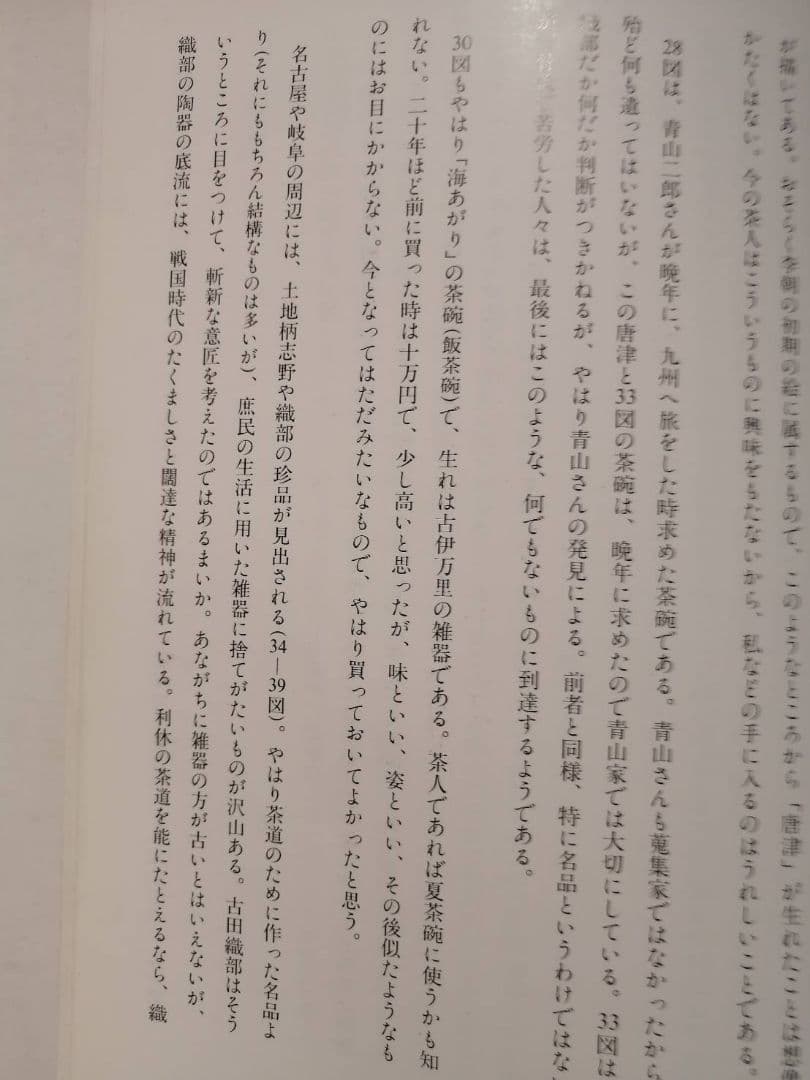 が描いてある。おそらく李朝の初期の絵に属するもので、このようなところから「唐津」が生れたことは想像
かたくはない。今の茶人はこういうものに興味をもたないから、私などの手に入るのはうれしいことである。
28図は、青山二郎さんが晩年に、九州へ旅をした時求めた茶碗である。青山さんも蒐集家ではなかったから
殆ど何も遺ってはいないが。この唐津と33図の茶碗は、晩年に求めたので青山家では大切にしている。33図は
部だか何だか判断がつきかねるが、やはり青山さんの発見による。前者と同様、特に名品というわけではな
苦労した人々は、最後にはこのような、何でもないものに到達するようである。
30図もやはり「海あがり」の茶碗(飯茶碗)で、生れは古伊万里の雑器である。茶人であれば夏茶碗に使うかも知
れない。二十年ほど前に買った時は十万円で、少し高いと思ったが、味といい、姿といい、その後似たようなも
のにはお目にかからない。今となってはただみたいなもので、やはり買っておいてよかったと思う。
名古屋や岐阜の周辺には、土地柄志野や織部の珍品が見出される(34―39図)。やはり茶道のために作った名品よ
り(それにももちろん結構なものは多いが)、庶民の生活に用いた雑器に捨てがたいものが沢山ある。古田織部はそう
いうところに目をつけて、斬新な意匠を考えたのではあるまいか。あながちに雑器の方が古いとはいえないが、
織部の陶器の底流には、戦国時代のたくましさと闊達な精神が流れている。利休の茶道を能にたとえるなら、織